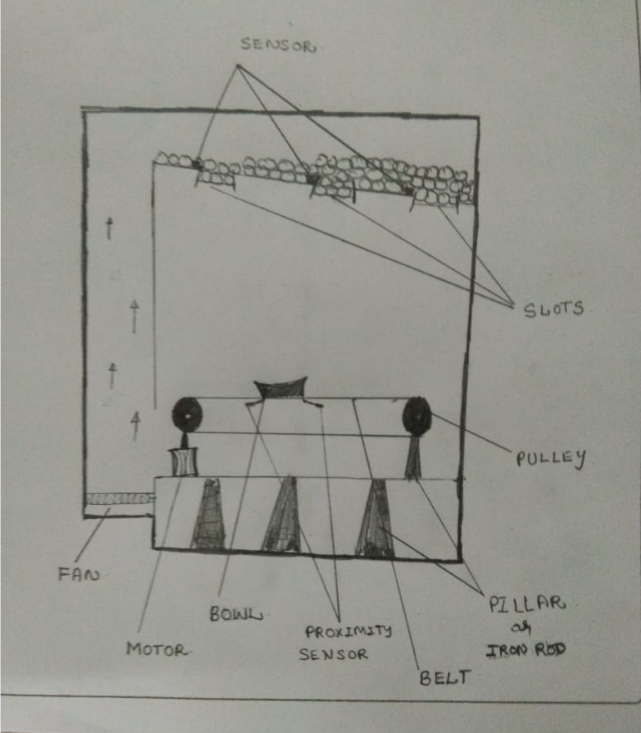 SENSOR
SLOTS
PULLEY
FAN
BOWL
MOTOR
PROXIMITY
SENSOR
BELT
PILLAR
or
IRON ROD